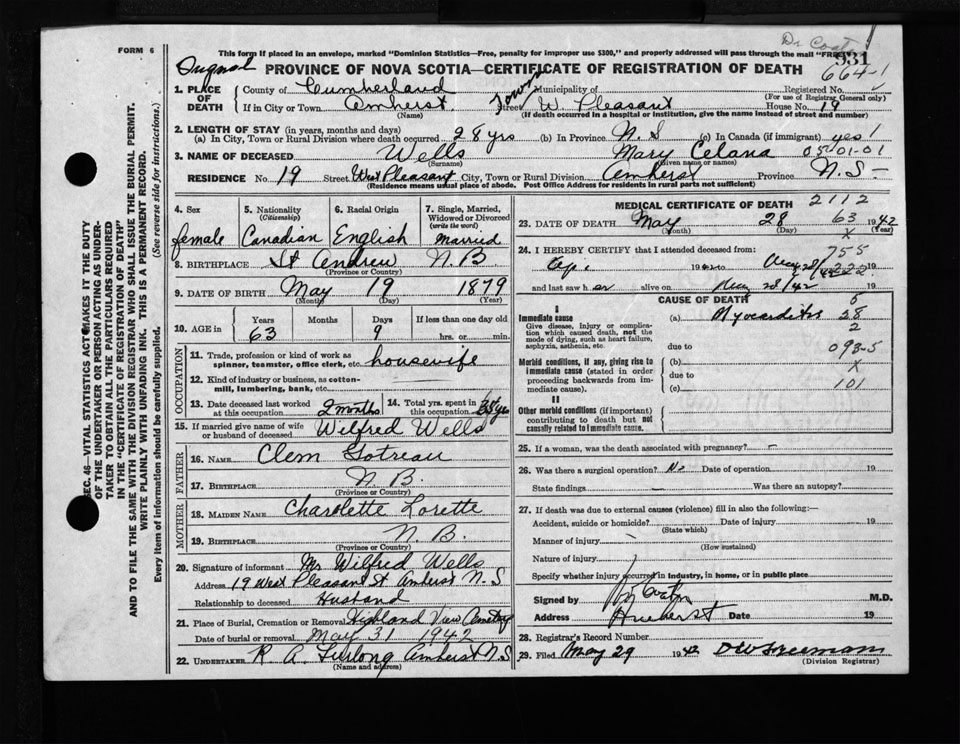 Dr Coates
FORM 6
This form if placed in an envelope, marked "Dominion Statistics—Free, penalty for improper use $300," and properly addressed will pass through the mail "FREE"
931
Original PROVINCE OF NOVA SCOTIA—CERTIFICATE OF REGISTRATION OF DEATH 664-1
1. PLACE OF DEATH County of Cumberland Municipality of Registered No.
(For use of Registrar General only)
If in City or Town Amherst Street W. Pleasant House No. 19
(Name) (If death occurred in a hospital or institution, give the name instead of street and number)
2. LENGTH OF STAY (in years, months and days)
(a) In City, Town or Rural Division where death occurred 28 yrs (b) In Province N. S (c) In Canada (if immigrant) yes
3. NAME OF DECEASED Wells Mary Celana 05-01-01
(Surname) (Given name or names)
RESIDENCE No. 19 Street West Pleasant City, Town or Rural Division Amherst Province N. S—
(Residence means usual place of abode. Post Office Address for residents in rural parts not sufficient)
4. Sex
female
5. Nationality
(Citizenship)
Canadian
6. Racial Origin
English
7. Single, Married, Widowed or Divorced
(write the word)
married
8. BIRTHPLACE St Andrew N. B
(Province or Country)
9. DATE OF BIRTH May 19 1879
(Month) (Day) (Year)
10. AGE in Years Months Days If less than one day old
63 9 hrs. or min.
OCCUPATION
11. Trade, profession or kind of work as spinner, teamster, office clerk, etc. housewife
12. Kind of industry or business, as cotton-mill, lumbering, bank, etc.
13. Date deceased last worked at this occupation 2 months 14. Total yrs. spent in this occupation
15. If married give name of wife or husband of deceased Wilfred Wells
FATHER
16. NAME Clem Gotreau
17. BIRTHPLACE N. B.
(Province or Country)
MOTHER
18. MAIDEN NAME Charolette Lorette
19. BIRTHPLACE N. B.
(Province or Country)
20. Signature of informant Mr Wilfred Wells
Address 19 West Pleasant St Amherst N. S
Relationship to deceased Husband
21. Place of Burial, Cremation or Removal Highland View Cemetery
Date of burial or removal May 31 1942
22. UNDERTAKER R. A. Furlong Amherst N. S
(Name and address)
MEDICAL CERTIFICATE OF DEATH 2112
23. DATE OF DEATH May 28 63 1942
(Month) (Day) x (Year)
24. I HEREBY CERTIFY that I attended deceased from: 755
19 to 19
and last saw her alive on 28/42 19
CAUSE OF DEATH
I
Immediate cause
Give disease, injury or complication which caused death, not the mode of dying, such as heart failure, asphyxia, asthenia, etc.
(a) Myocarditis 28
2
due to 093-5
Morbid conditions, if any, giving rise to immediate cause (stated in order proceeding backwards from immediate cause).
(b) x
due to
(c) 101
II
Other morbid conditions (if important) contributing to death but not causally related to immediate cause.
25. If a woman, was the death associated with pregnancy? –
26. Was there a surgical operation? No Date of operation 19
State findings Was there an autopsy?
27. If death was due to external causes (violence) fill in also the following:—
Accident, suicide or homicide? Date of injury 19
(State which)
Manner of injury
(How sustained)
Nature of injury
Specify whether injury occurred in industry, in home, or in public place
Signed by Coates M.D.
Address Amherst Date 19
28. Registrar's Record Number
29. Filed May 29 1942 DW Freeman
(Division Registrar)
SEC. 46—VITAL STATISTICS ACT MAKES IT THE DUTY
OF THE UNDERTAKER OR PERSON ACTING AS UNDER-
TAKER TO OBTAIN ALL THE PARTICULARS REQUIRED
IN THE "CERTIFICATE OF REGISTRATION OF DEATH"
AND TO FILE THE SAME WITH THE DIVISION REGISTRAR WHO SHALL ISSUE THE BURIAL PERMIT.
WRITE PLAINLY WITH UNFADING INK. THIS IS A PERMANENT RECORD.
Every item of information should be carefully supplied. (See reverse side for instructions.)